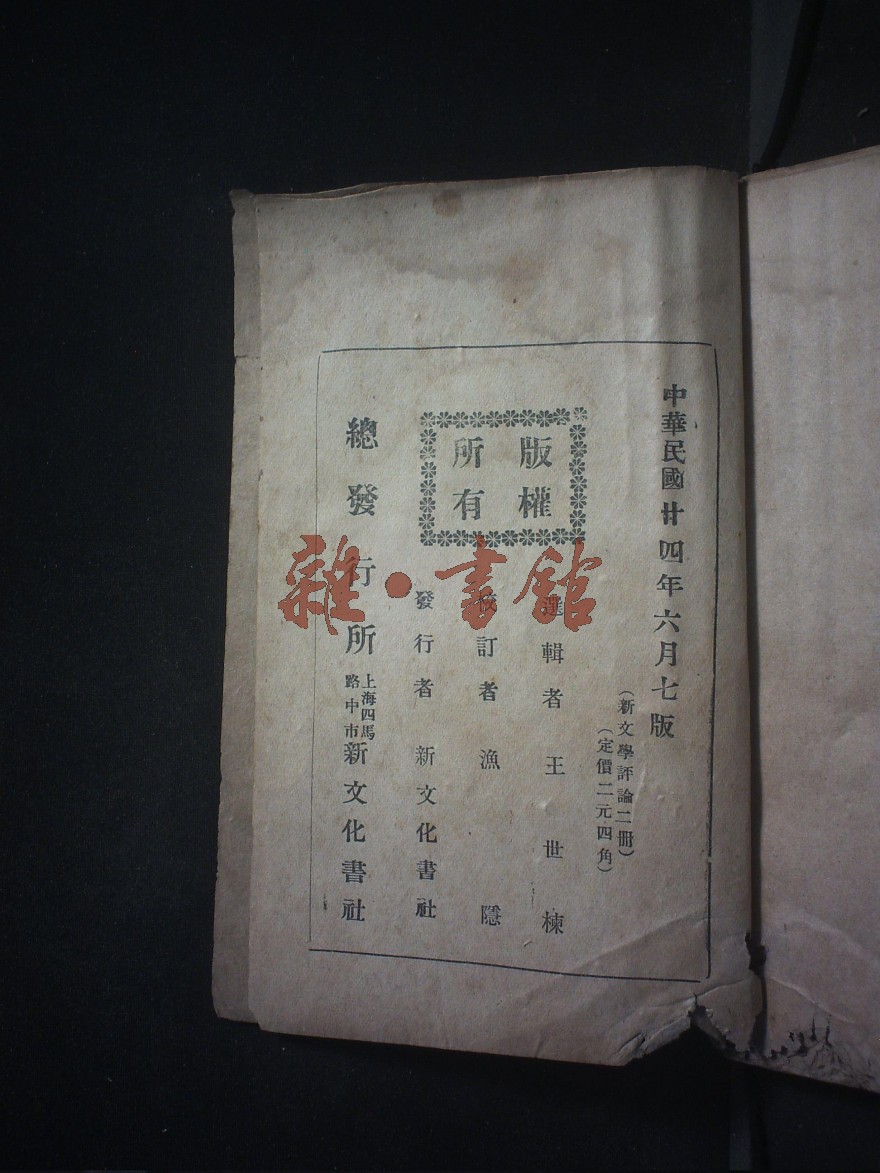 中華民國廿四年六月七版
（新文學評論二冊）
（定價二元四角）
版權
所有
選輯者 王世棟
校訂者 漁隱
發行者 新文化書社
總發行所 上海四馬
路中市 新文化書社
雜·書館